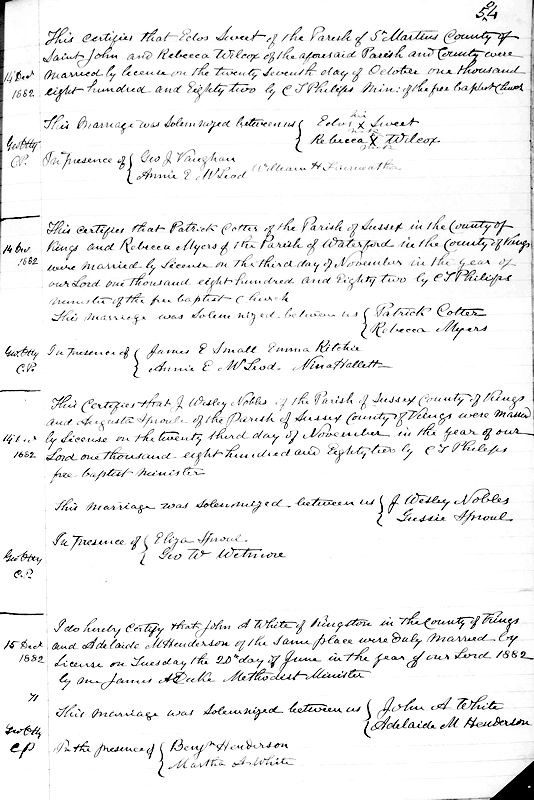 54
This certifies that Edos Sweet of the Parish of St Martins County of
14 Decr Saint John and Rebecca Wilcox of the aforesaid Parish and County were
1882 married by license on the twenty seventh day of October one thousand
eight hundred and Eighty two by C T Philips Min: of the free baptist Church
This Marriage was Solemnized between us { Edos his x Sweet
Rebecca X Wilcox
C.P. In presence of { Geo J Vaughan
Annie E McLeod William H
This certifies that Patrick Cotter of the Parish of Sussex in the County of
14 Dec Kings and Rebecca Myers of the Parish of Waterford in the County of Kings
1882 were married by License on the third day of November in the year of
our Lord one thousand eight hundred and Eighty two by C T Philips
minister of the free baptist Church
This marriage was Solemnized between us { Patrick Cotter
Rebecca Myers
In presence of { James E Small Emma Ritchie
C.P. Annie E McLeod Nina Hallett
This Certifies that J Wesley Nobles of the Parish of Sussex County of Kings
and Augusta Sproule of the Parish of Sussex County of Kings were
14 Dec by License on the twenty third day of November in the year of our
1882 Lord one thousand eight hundred and Eighty two by C T Philips
free baptist minister
This marriage was Solemnized between us { J Wesley Nobles
Gussie Sproul
In presence of { Eliza Sproul
Geo W Wetmore
C.P.
I do hereby Certify that John A White of Kingston in the County of Kings
15 Decr and Adelaide M Henderson of the same place were duly married by
1882 License on Tuesday the 20th day of June in the year of our Lord 1882
by me James A Duke Methodest Minister
71
This marriage was Solemnized between us { John A White
Adelaide M Henderson
CP In the presence of { Benjn Henderson
Martha A White